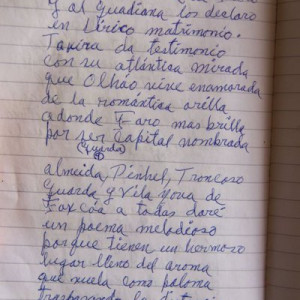 y al Guadiana los declaro
en Lírico matrimonio.
Tavira da testimonio
con su atlántica mirada
que Olhão vive enamorada
de la romántica orilla
adonde Faro mas brilla
por ser Capital nombrada
(Guarda)
almeida, Pinhel, Trancoso
Guarda y Vila Nova de
Foxcôa a todas daré
un poema melodioso
porque tienen un hermoso
lugar lleno del aroma
que vuela como paloma
la